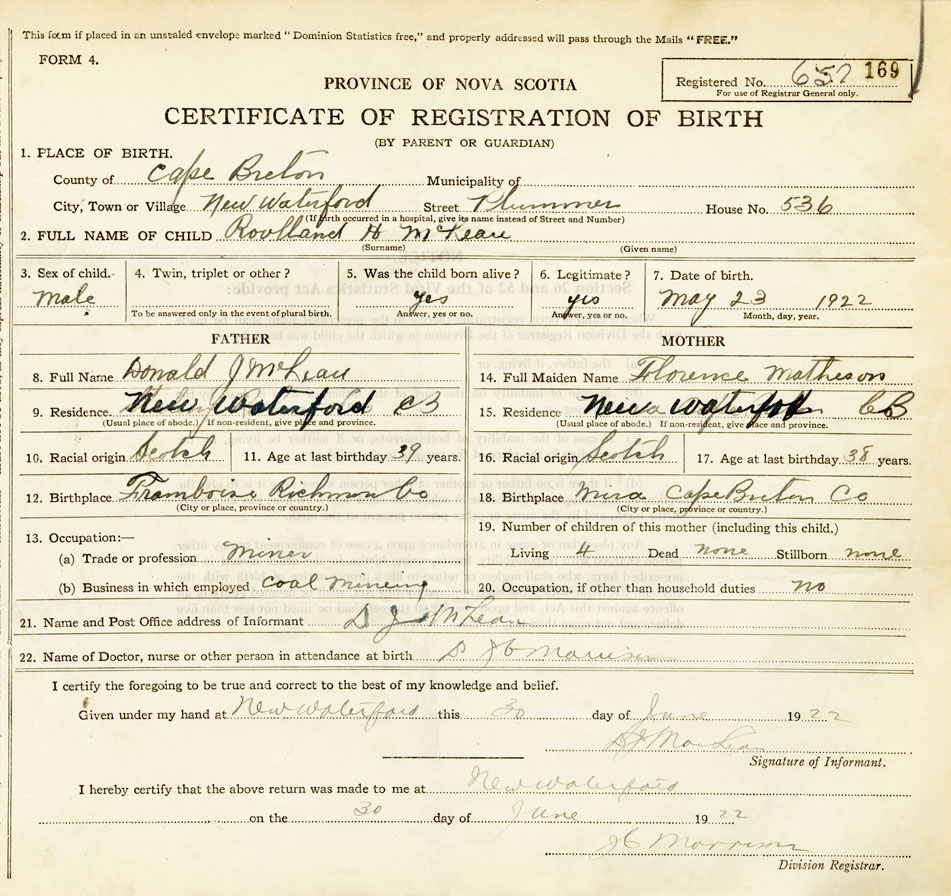 This form if placed in an unsealed envelope marked "Dominion Statistics free," and properly addressed will pass through the Mails "FREE."
FORM 4.
Registered No. 657 169
For use of Registrar General only.
PROVINCE OF NOVA SCOTIA
CERTIFICATE OF REGISTRATION OF BIRTH
(BY PARENT OR GUARDIAN)
1. PLACE OF BIRTH.
County of Cape Breton Municipality of
City, Town or Village New Waterford Street Plummer House No. 536
(If birth occurred in a hospital, give its name instead of Street and Number)
2. FULL NAME OF CHILD Rowlland H McLean
(Surname) (Given name)
3. Sex of child. 4. Twin, triplet or other? 5. Was the child born alive? 6. Legitimate? 7. Date of birth.
Male yes yes May 23 1922
To be answered only in the event of plural birth. Answer, yes or no. Answer, yes or no. Month, day, year.
FATHER MOTHER
8. Full Name Donald J McLean 14. Full Maiden Name Florence Matheson
9. Residence. New Waterford CB 15. Residence New Waterford CB
(Usual place of abode.) If non-resident, give place and province. (Usual place of abode.) If non-resident, give place and province.
10. Racial origin Scotch 11. Age at last birthday 39 years. 16. Racial origin Scotch 17. Age at last birthday 38 years.
12. Birthplace Framboise Richmon Co 18. Birthplace Mira Cape Breton Co
(City or place, province or country.) (City or place, province or country.)
13. Occupation:— 19. Number of children of this mother (including this child.)
(a) Trade or profession Miner Living 4 Dead none Stillborn none
(b) Business in which employed coal mining 20. Occupation, if other than household duties no
21. Name and Post Office address of Informant D J McLean
22. Name of Doctor, nurse or other person in attendance at birth Morrison
I certify the foregoing to be true and correct to the best of my knowledge and belief.
Given under my hand at New Waterford this 30 day of June 1922
D J MacLean
Signature of Informant.
I hereby certify that the above return was made to me at New Waterford
on the 30 day of June 1922
J C Morrison
Division Registrar.